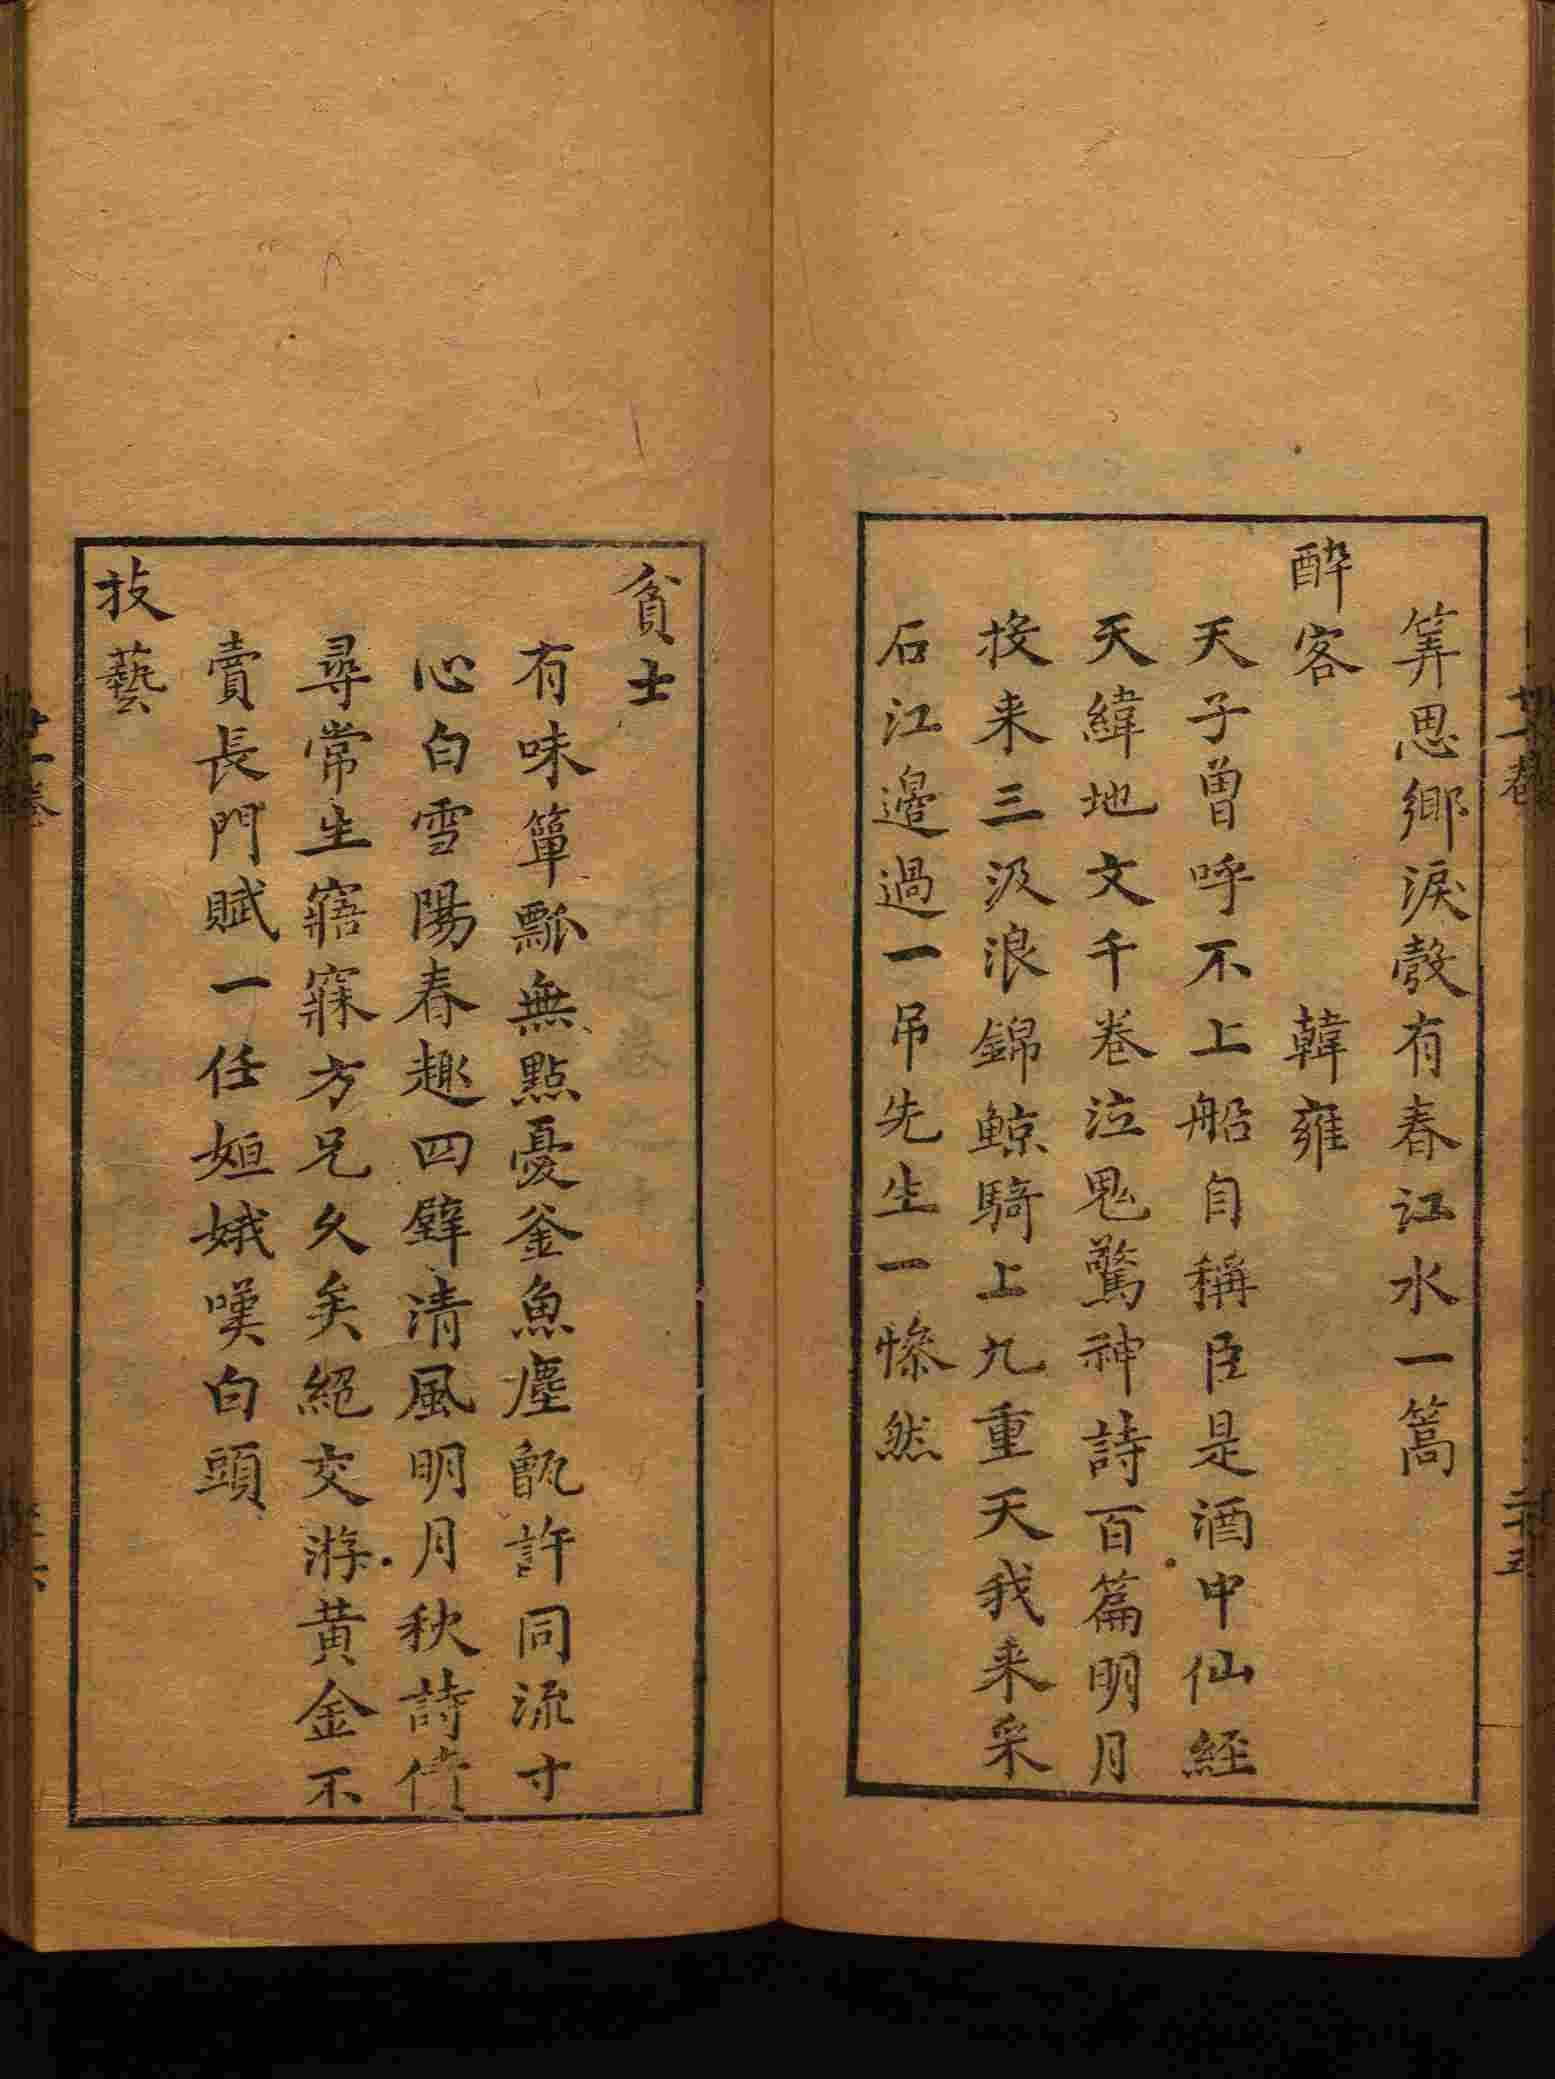 筭思鄉淚殼有春江水一篙
醉客 韓雍
天子曾呼不上船自稱臣是酒中仙經
天緯地文千卷泣鬼驚神詩百篇明月
投来三汲浪錦鯨騎上九重天我来采
石江邉過一吊先生一慘然
貧士
有味簞瓢無點憂釜魚塵甑許同流寸
心白雪陽春趣四壁清風明月秋詩債
尋常生寤寐方兄久矣絕交游黃金不
賣長門賦一任姮娥嘆白頭
技藝